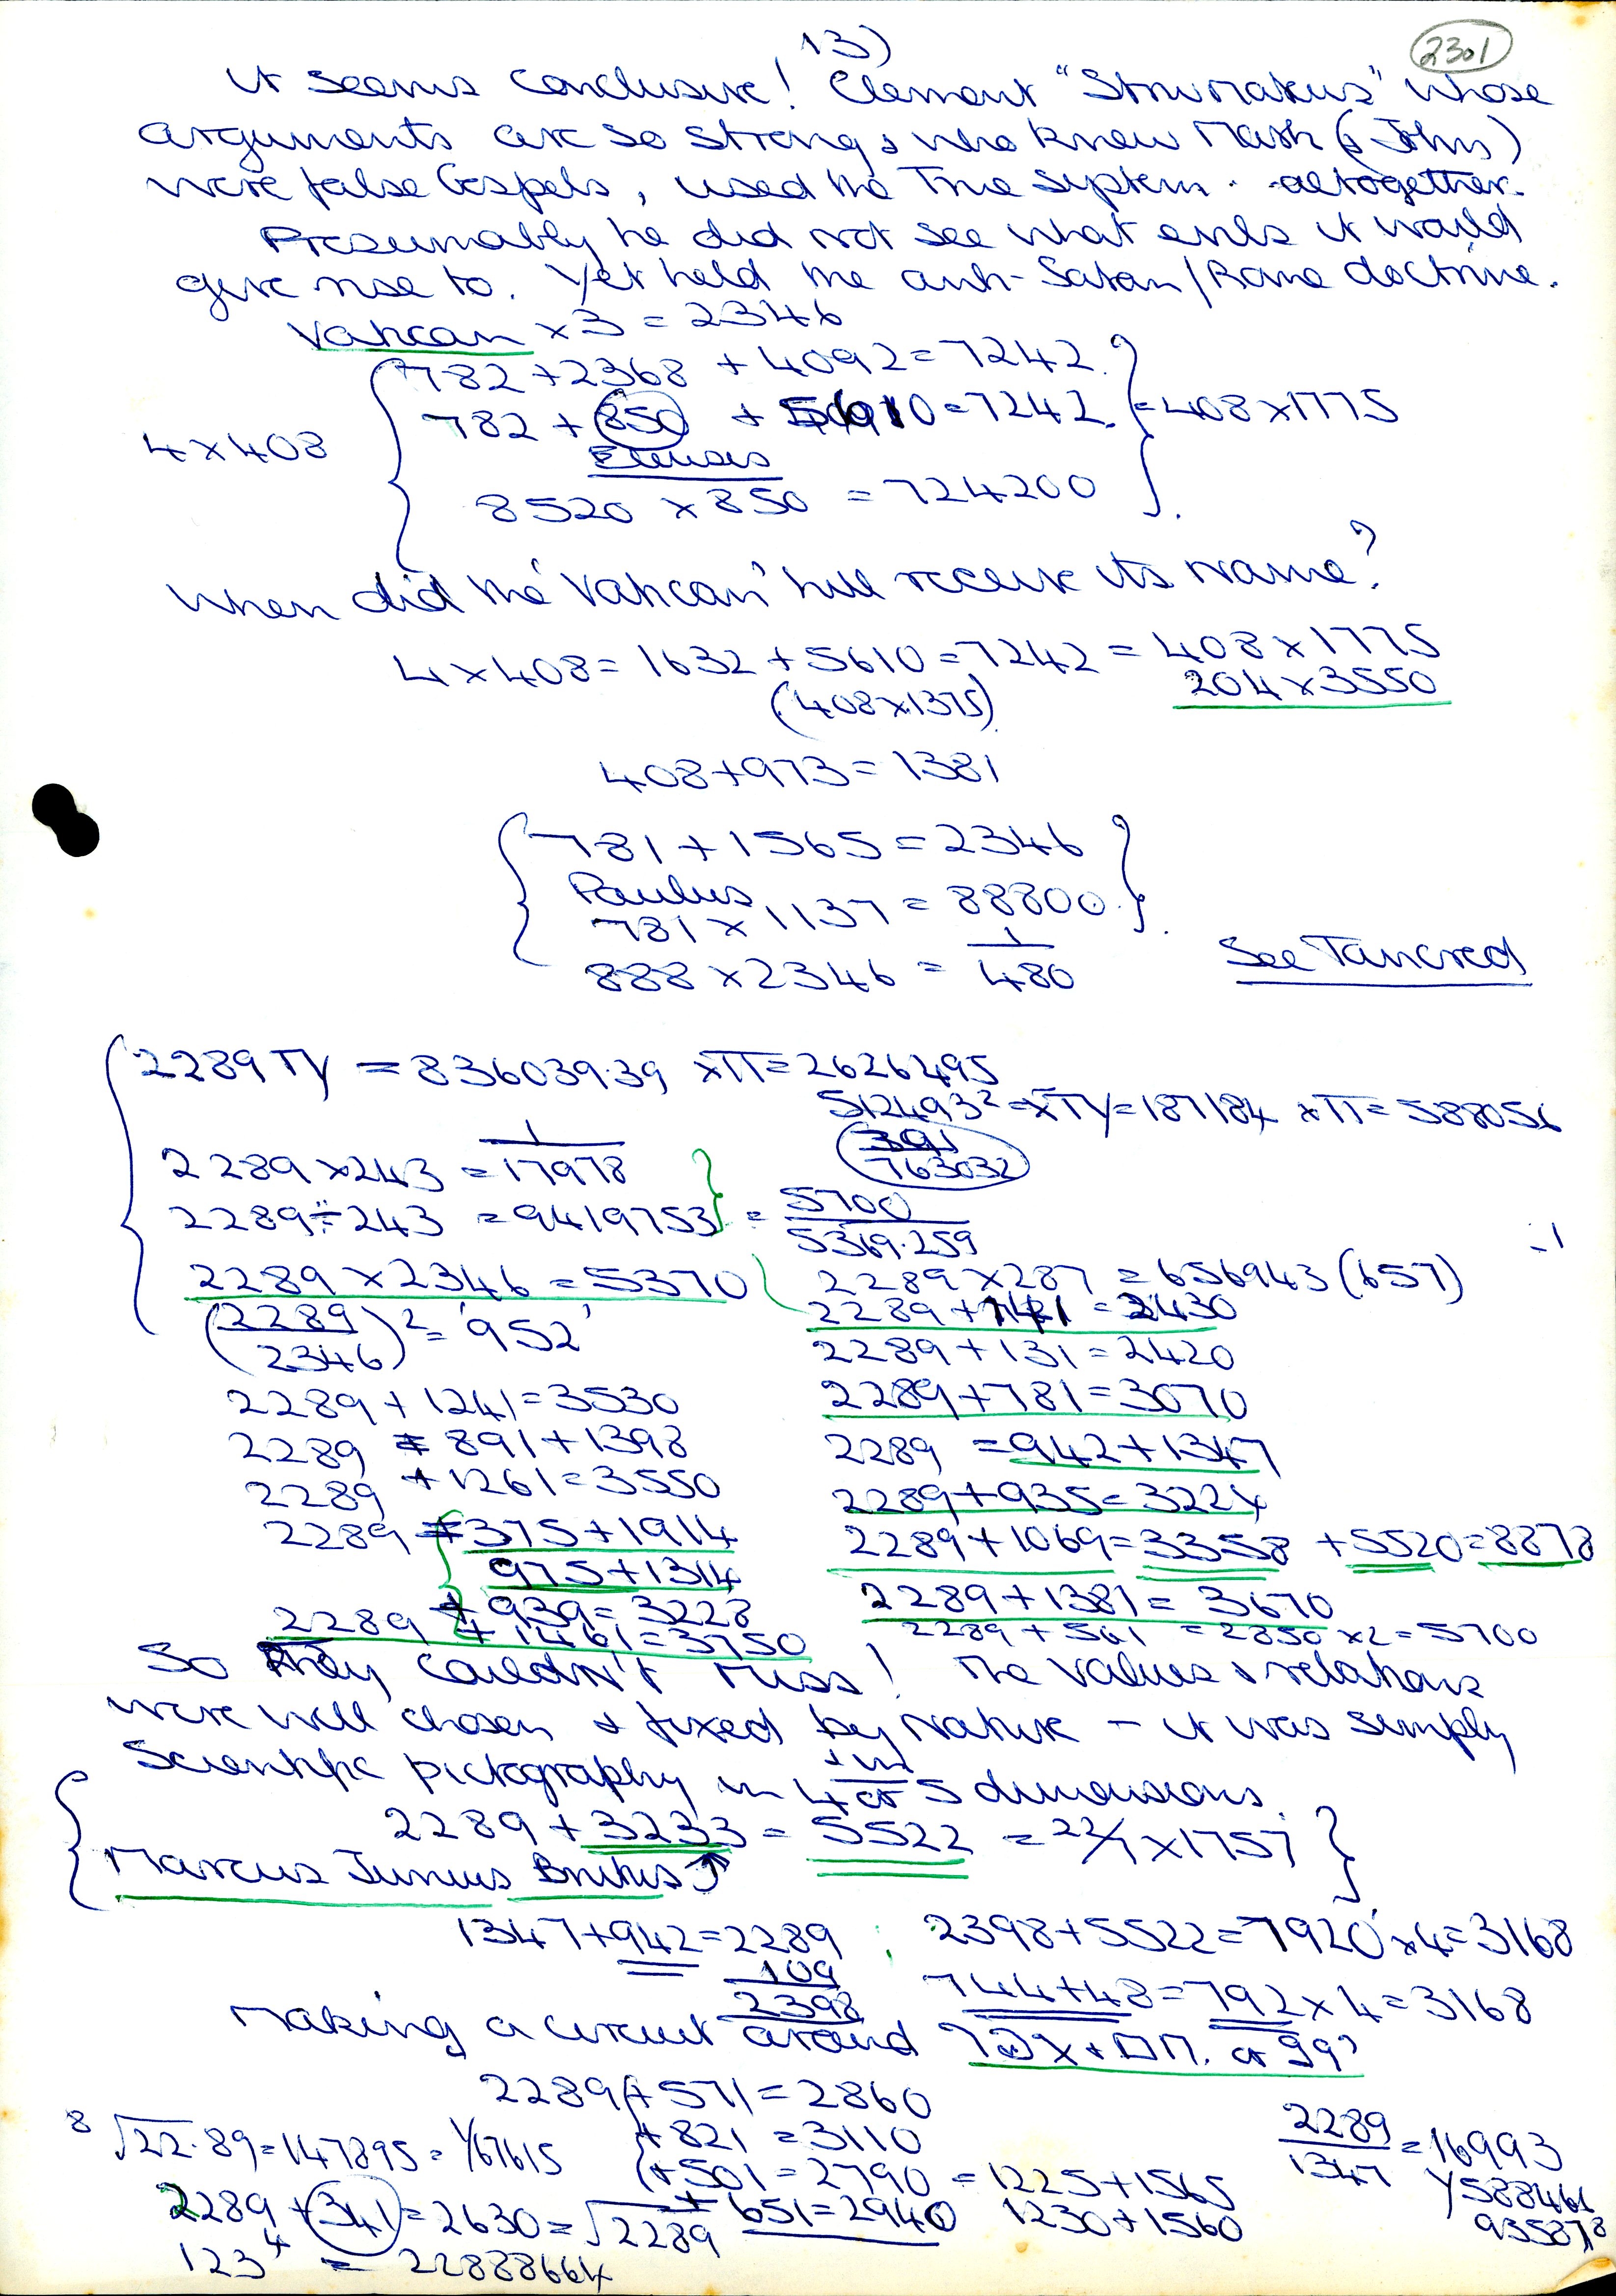 13)
2301
It seems conclusive! Clement "Strumatus" whose
arguments are so strong & who knew Mark (& John)
were false Gospels, used the True System altogether.
Presumably he did not see what evils it would
give rise to. Yet held the anti-Satan/Rome doctrine.
Vatican x 3 = 2346
782 + 2368 + 4092 = 7242
782 + 850 + 5610 = 7242. = 408 x 1775
4 x 408
Eleusis
8520 x 850 = 724200
When did the 'Vatican' hill receive its name?
4 x 408 = 1632 + 5610 = 7242 = 408 x 1775
(408 x 1375) 204 x 3550
408 + 973 = 1381
781 + 1565 = 2346
Paulus
781 x 1137 = 88800
888 x 2346 = 1/480
See Tancred
2289 TY = 836039.39, x π = 2626495
512493² = x TY = 187184 x π = 588056
391/763032
2289 x 243 = 1/17978
2289 ÷ 243 = 9419753 = 5700/5369.259
-1
2289 x 2346 = 5370
2289 x 287 = 656943 (657)
(2289/2346)² = '952'
2289 + 141 = 2430
2289 + 131 = 2420
2289 + 1241 = 3530
2289 + 781 = 3070
2289 = 891 + 1398
2289 = 942 + 1347
2289 + 1261 = 3550
2289 + 935 = 3224
2289 = 375 + 1914
2289 + 1069 = 3358 + 5520 = 8878
975 + 1314
2289 + 1381 = 3670
+ 939 = 3228
2289 + 1461 = 3750
2289 + 561 = 2850 x 2 = 5700
So they couldn't miss! The values & relations
were well chosen & fixed by Nature - it was simply
Scientific pictography in 4 or 5 dimensions.
2289 + 3233 = 5522 = 22/7 x 1757
Marcus Junius Brutus
1347 + 942 = 2289 ; 2398 + 5522 = 7920 x 4 = 3168
109
2398
744 + 48 = 792 x 4 = 3168
Making a circuit around
2289 + 571 = 2860
+ 821 = 3110
+ 501 = 2790 = 1225 + 1565
+ 651 = 2940 1230 + 1560
8√22.89 = 147895 = 1/67615
2289 + 341 = 2630 = √2289
123⁴ = 22888664
2289/1347 = 16993
1/588461
935878